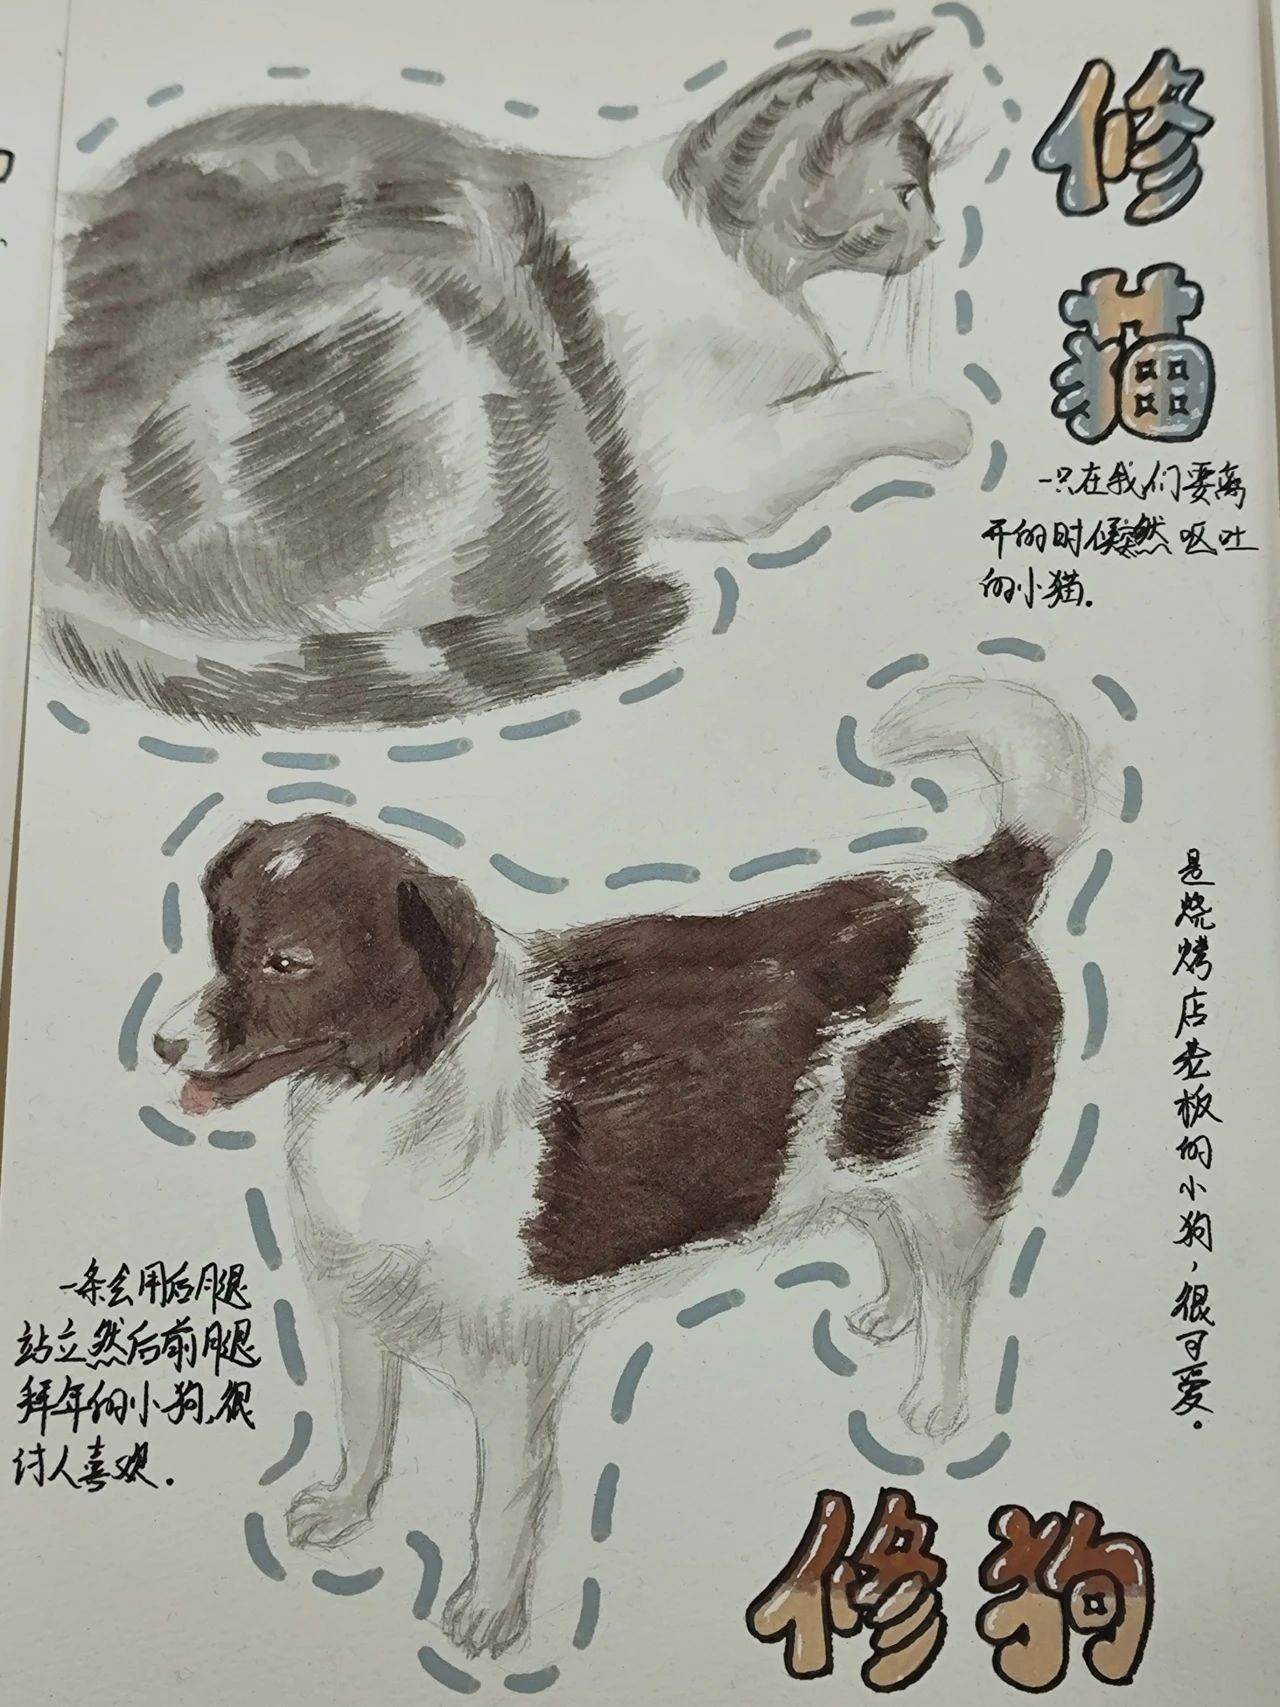 修
猫
一只在我们要离
开的时候突然呕吐
的小猫.
是烧烤店老板的小狗，很可爱。
一条会用后腿
站立然后前腿
拜年的小狗,很
讨人喜欢.
修狗